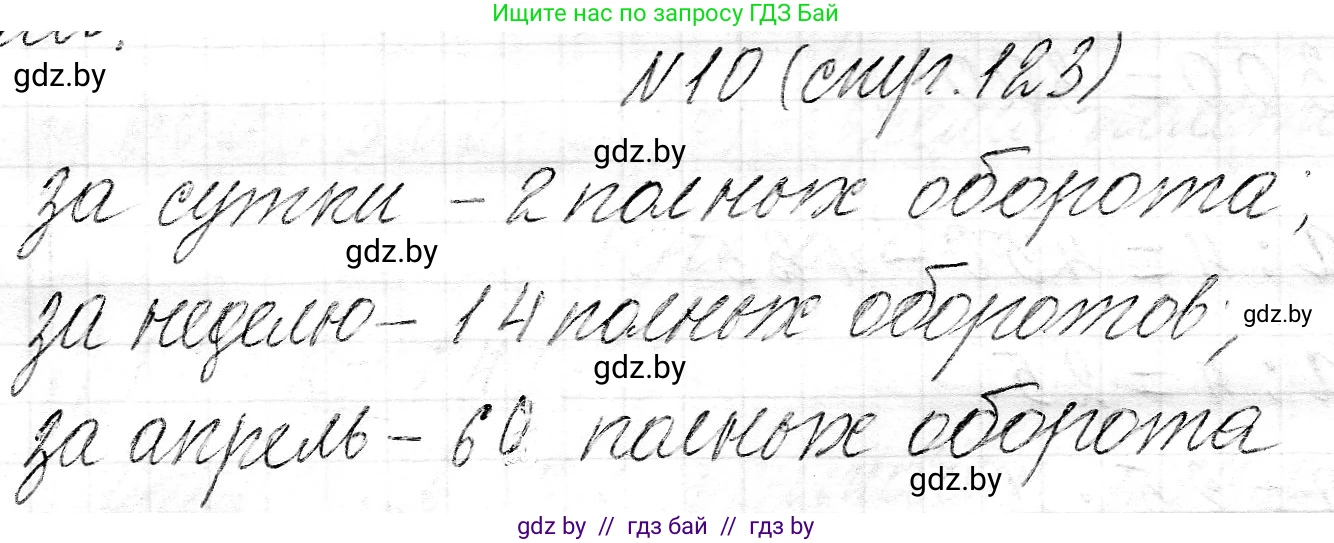 Ищите нас по запросу ГДЗ Бай
gdz.by
№10 (стр. 123)
gdz.by
за сутки - 2 полных оборота;
gdz.by
за неделю - 14 полных оборотов;
gdz.by
gdz.by
за апрель - 60 полных оборота
gdz.by
gdz by // гдз бай // гдз by